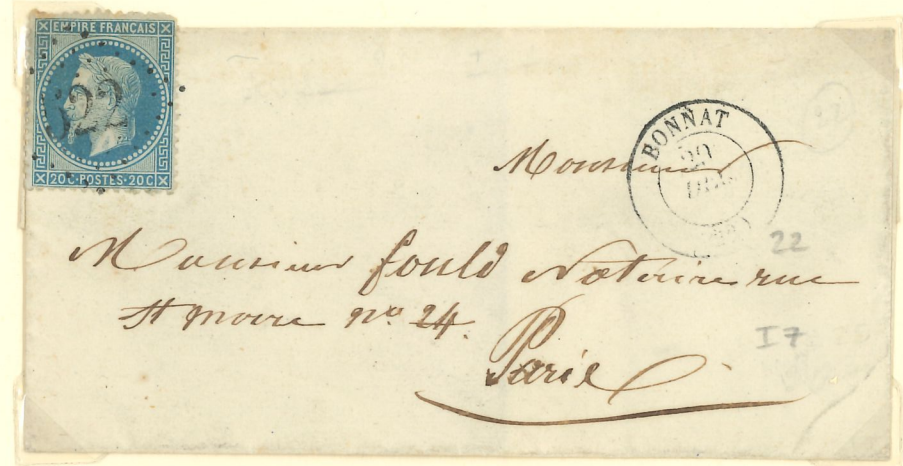 EMPIRE FRANÇAIS
522
20C·POSTES·20C
BONNAT
Monsieur
Monsieur fould Notaire rue
St marc no 24.
Paris
22
I7